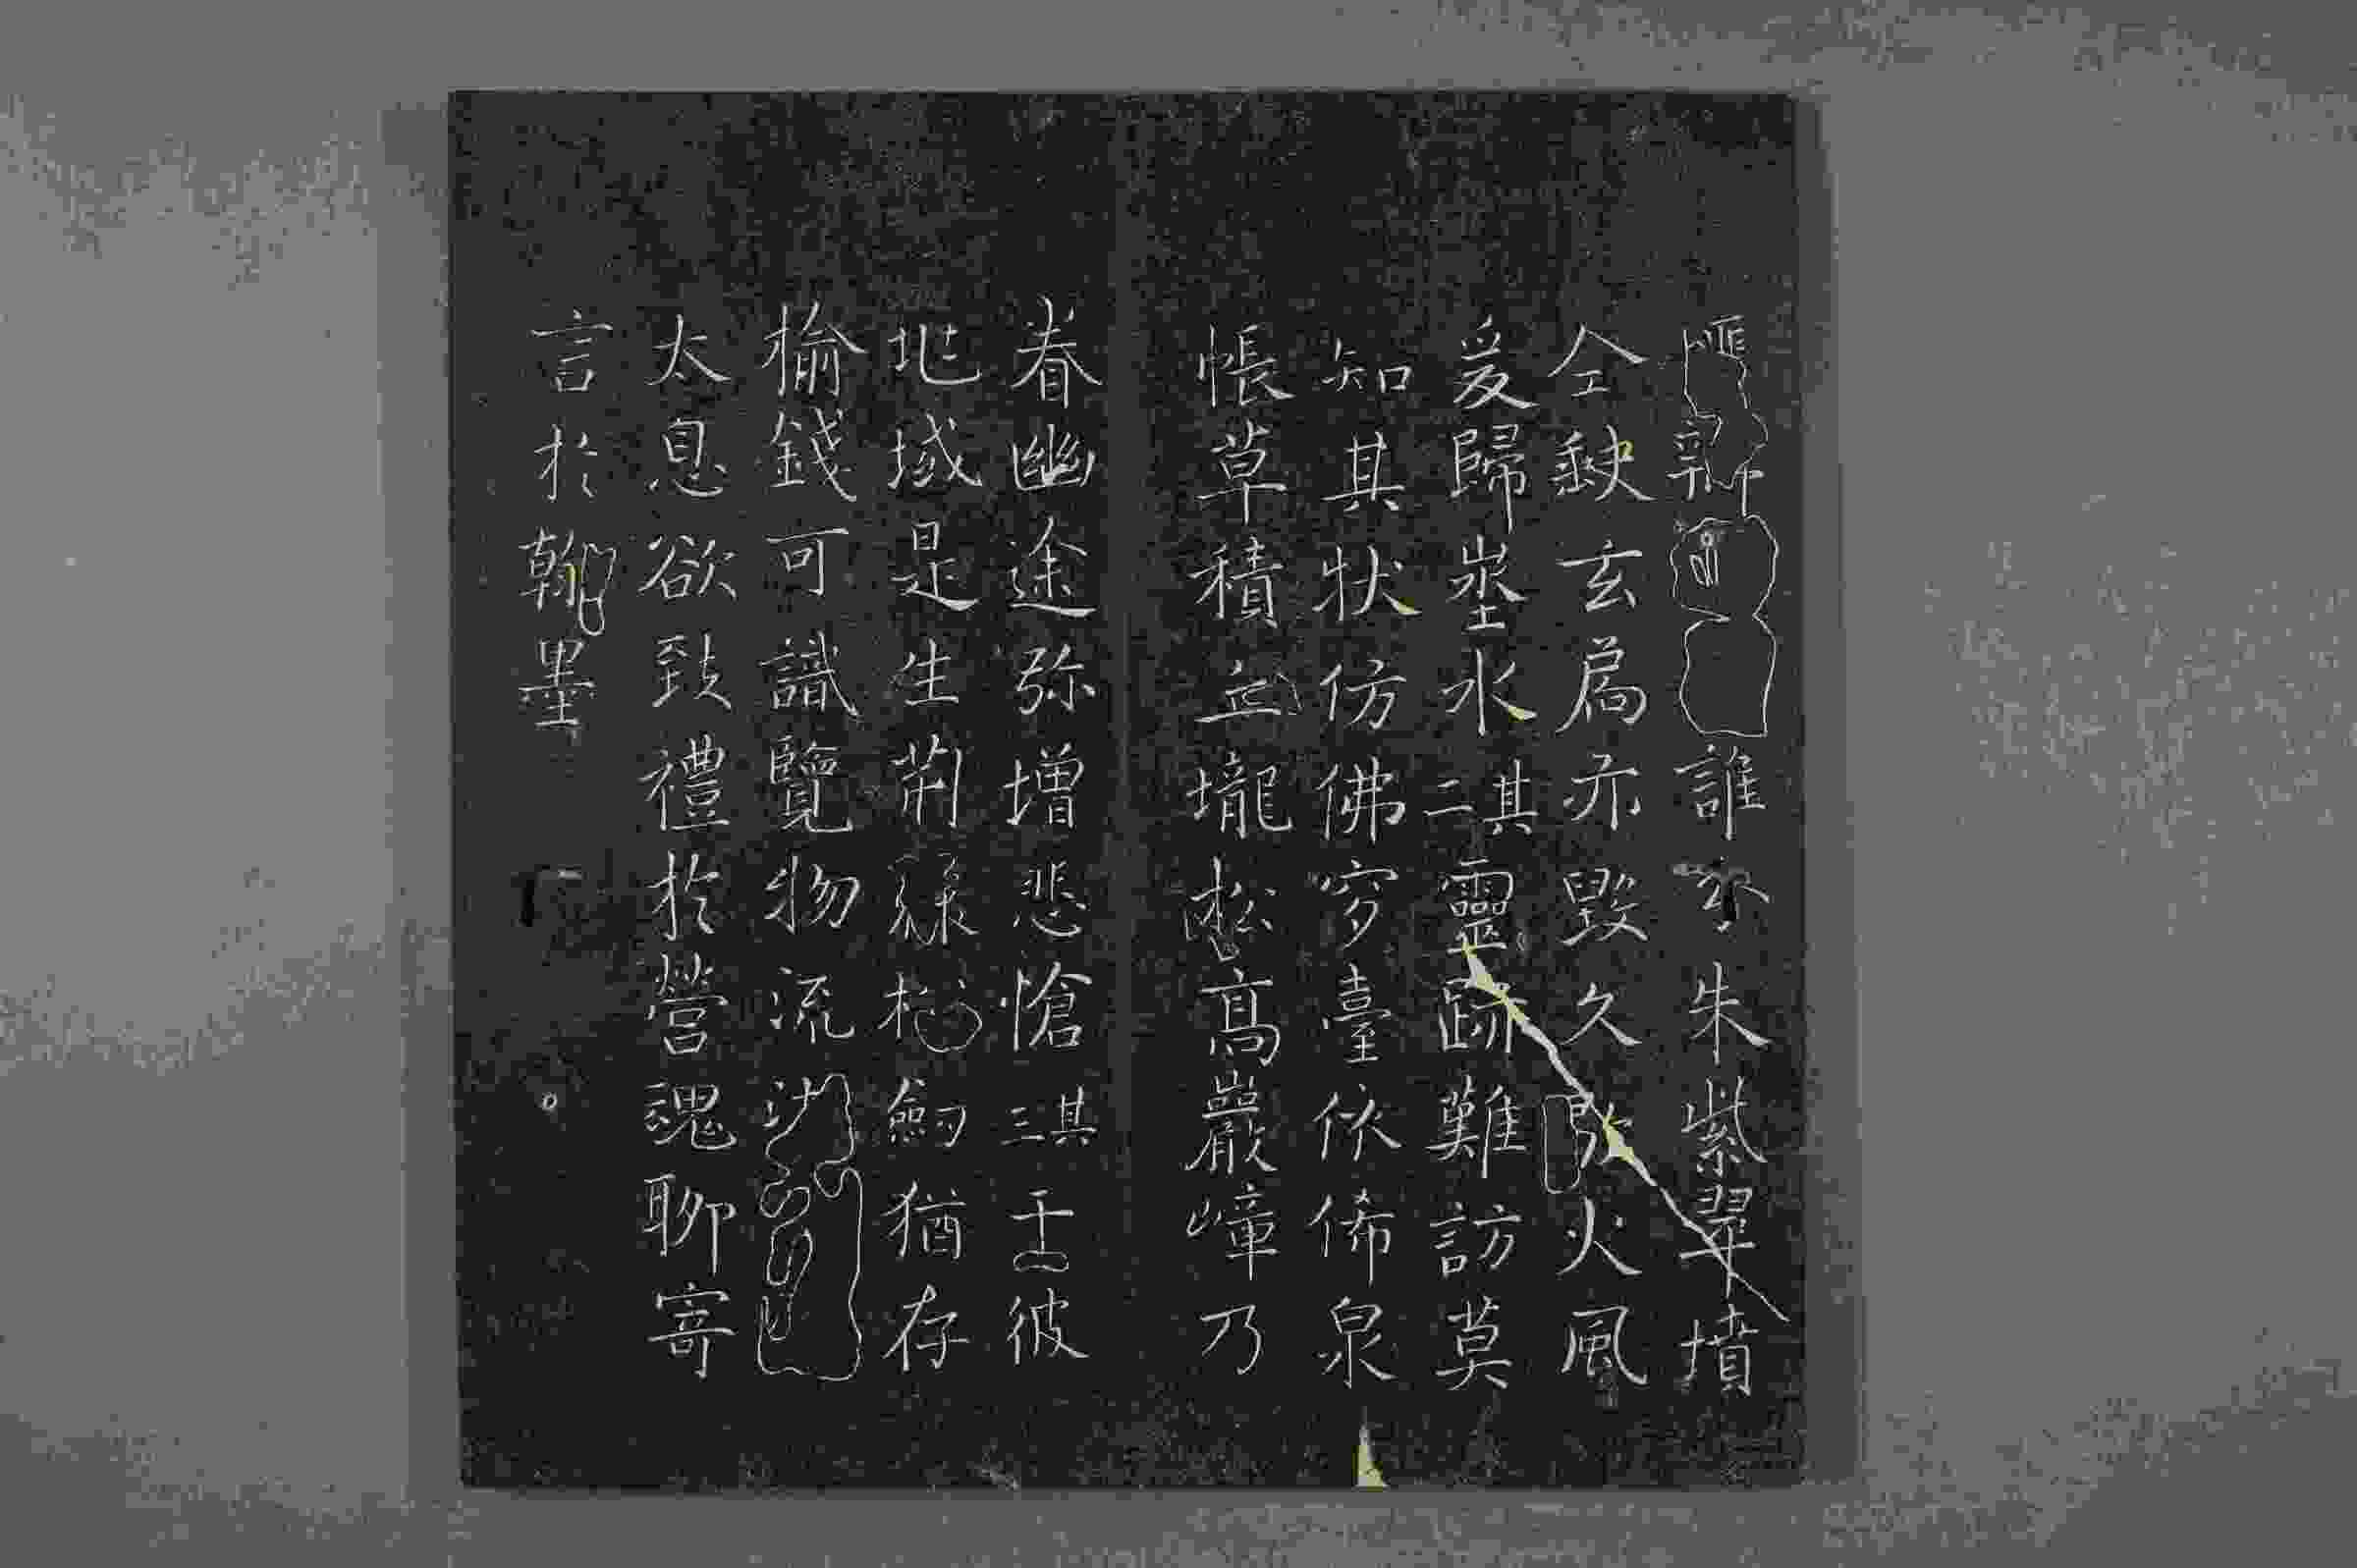 誰 朱紫翠墳
仝缺玄扃亦毀久 火風
爰歸壑水其二靈跡難訪莫
知其狀仿佛穸臺依俙泉
帳草積丘壠松高巖嶂乃
眷幽途弥增悲愴其三 彼
地域是生荊 劒猶存
榆錢可識覽物流
太息欲致禮於營魂聊寄
言於翰墨